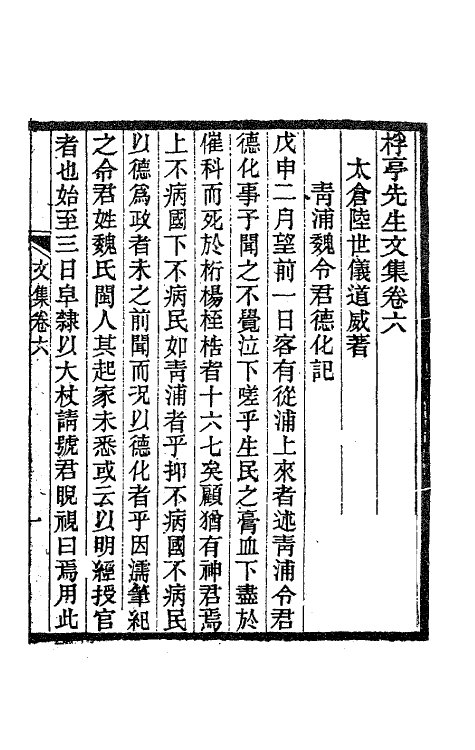 桴亭先生文集卷六
太倉陸世儀道威著
靑浦魏令君德化記
戊申二月望前一日客有從浦上來者述靑浦令君
德化事予聞之不覺泣下嗟乎生民之膏血下盡於
催科而死於桁楊桎梏者十六七矣顧猶有神君焉
上不病國下不病民如靑浦者乎抑不病國不病民
以德爲政者未之前聞而况以德化者乎因濡筆紀
之命君姓魏氏閩人其起家未悉或云以明經授官
者也始至三日皁隸以大杖請號君睨視曰焉用此
文集卷六
一